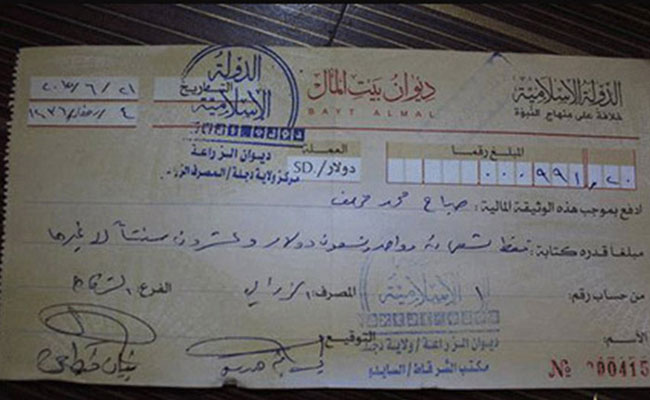 الدولة الإسلامية
خلافة على منهاج النبوة
ديوان بيت المال
BAYT ALMAL
التاريخ
٤ / رمضان / ١٤٣٦
الدولة
الإسلامية
ديوان الزراعة
مركز ولاية دجلة / المصرف الزراعي
المبلغ رقما
000991,20
العملة
دولار / SD.
ادفع بموجب هذه الوثيقة المالية: صباح محمد
مبلغا قدره كتابة: فقط تسعمائة وواحد وتسعون دولار وعشرون سنتاً لا غيرها
من حساب رقم: ١ المصرف: الزراعي الفرع: الشرقاط
الإسلامية
ديوان الزراعة / ولاية دجلة
مكتب الشرقاط / السايلو
الأسم:
التوقيع
№ 000415